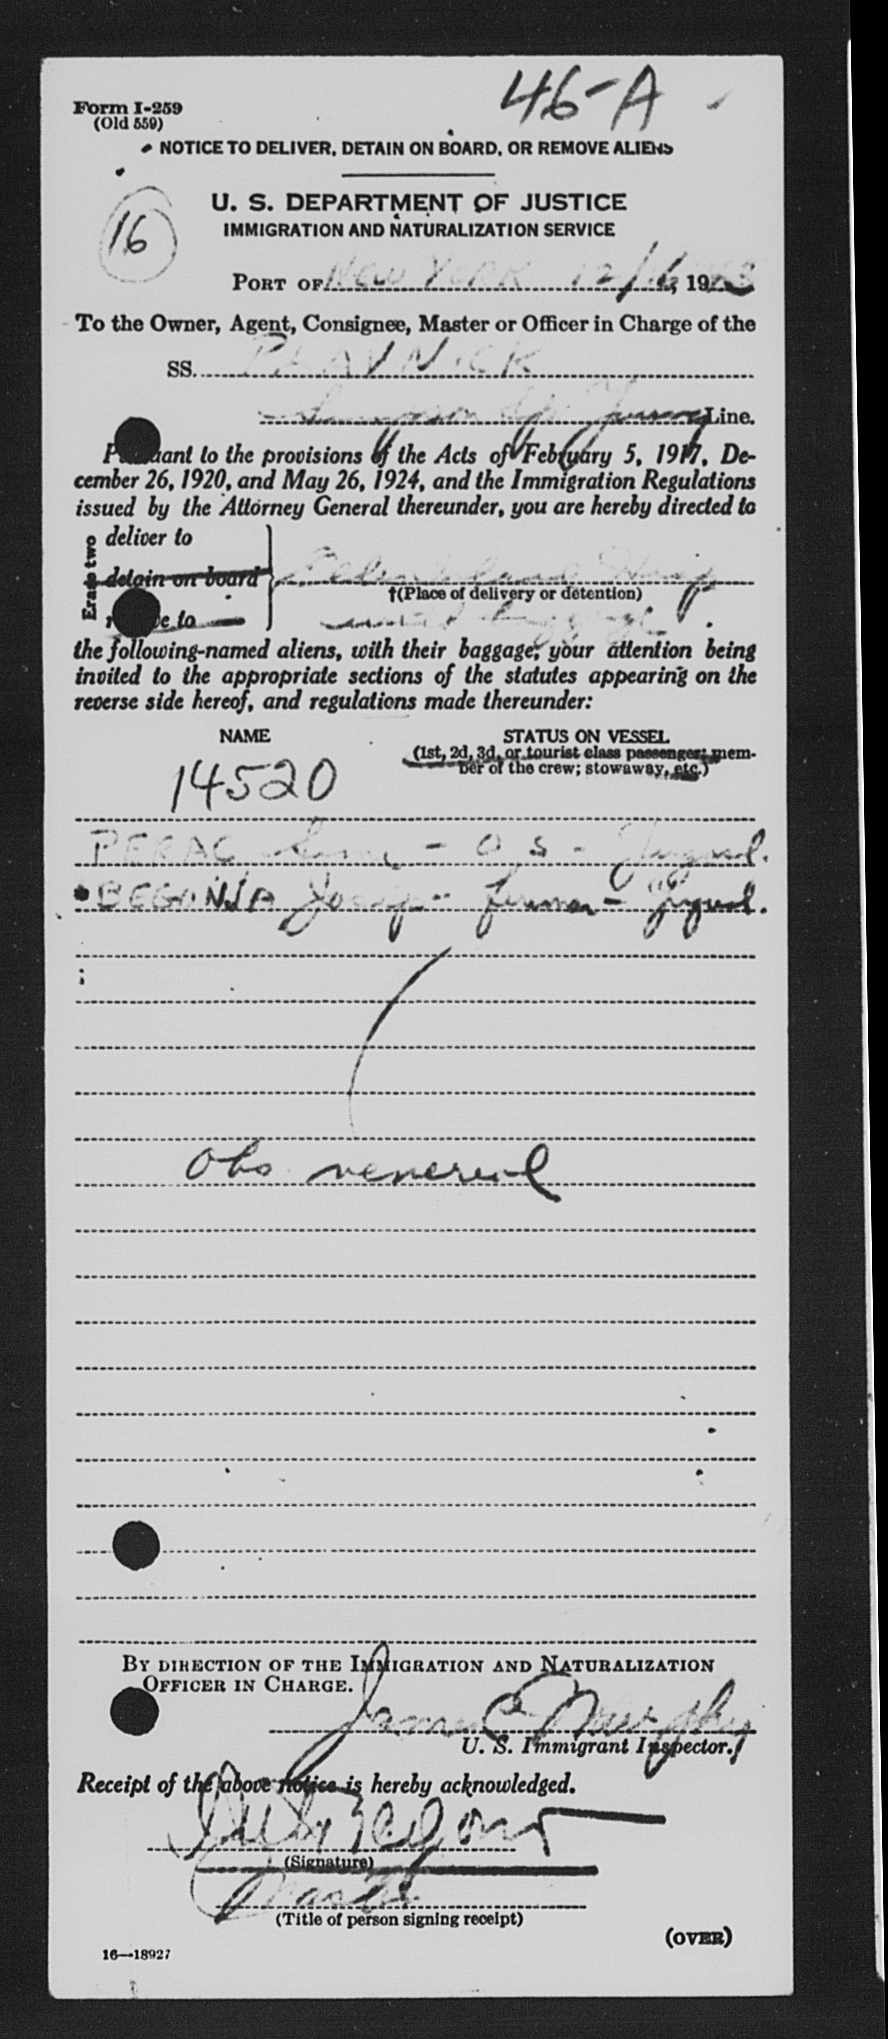 46-A
Form I-259
(Old 559)
NOTICE TO DELIVER, DETAIN ON BOARD, OR REMOVE ALIENS
U. S. DEPARTMENT OF JUSTICE
IMMIGRATION AND NATURALIZATION SERVICE
16
PORT OF New York 12/16, 19
To the Owner, Agent, Consignee, Master or Officer in Charge of the
SS.
Line.
Pursuant to the provisions of the Acts of February 5, 1917, De-
cember 26, 1920, and May 26, 1924, and the Immigration Regulations
issued by the Attorney General thereunder, you are hereby directed to
Erase two
deliver to
detain on board
remove to
†(Place of delivery or detention)
the following-named aliens, with their baggage, your attention being
invited to the appropriate sections of the statutes appearing on the
reverse side hereof, and regulations made thereunder:
NAME STATUS ON VESSEL
(1st, 2d, 3d, or tourist class passenger; mem-
ber of the crew; stowaway, etc.)
14520
PERAC - O S - Jugosl.
BEGONJA Josip - fireman - Jugosl.
Obs venereal
BY DIRECTION OF THE IMMIGRATION AND NATURALIZATION
OFFICER IN CHARGE.
James Murphy
U. S. Immigrant Inspector.
Receipt of the above notice is hereby acknowledged.
(Signature)
Master
(Title of person signing receipt)
(OVER)
16—18927